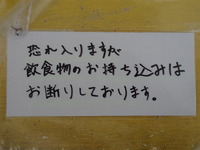 恐れ入りますが
飲食物のお持ち込みは
お断りしております。